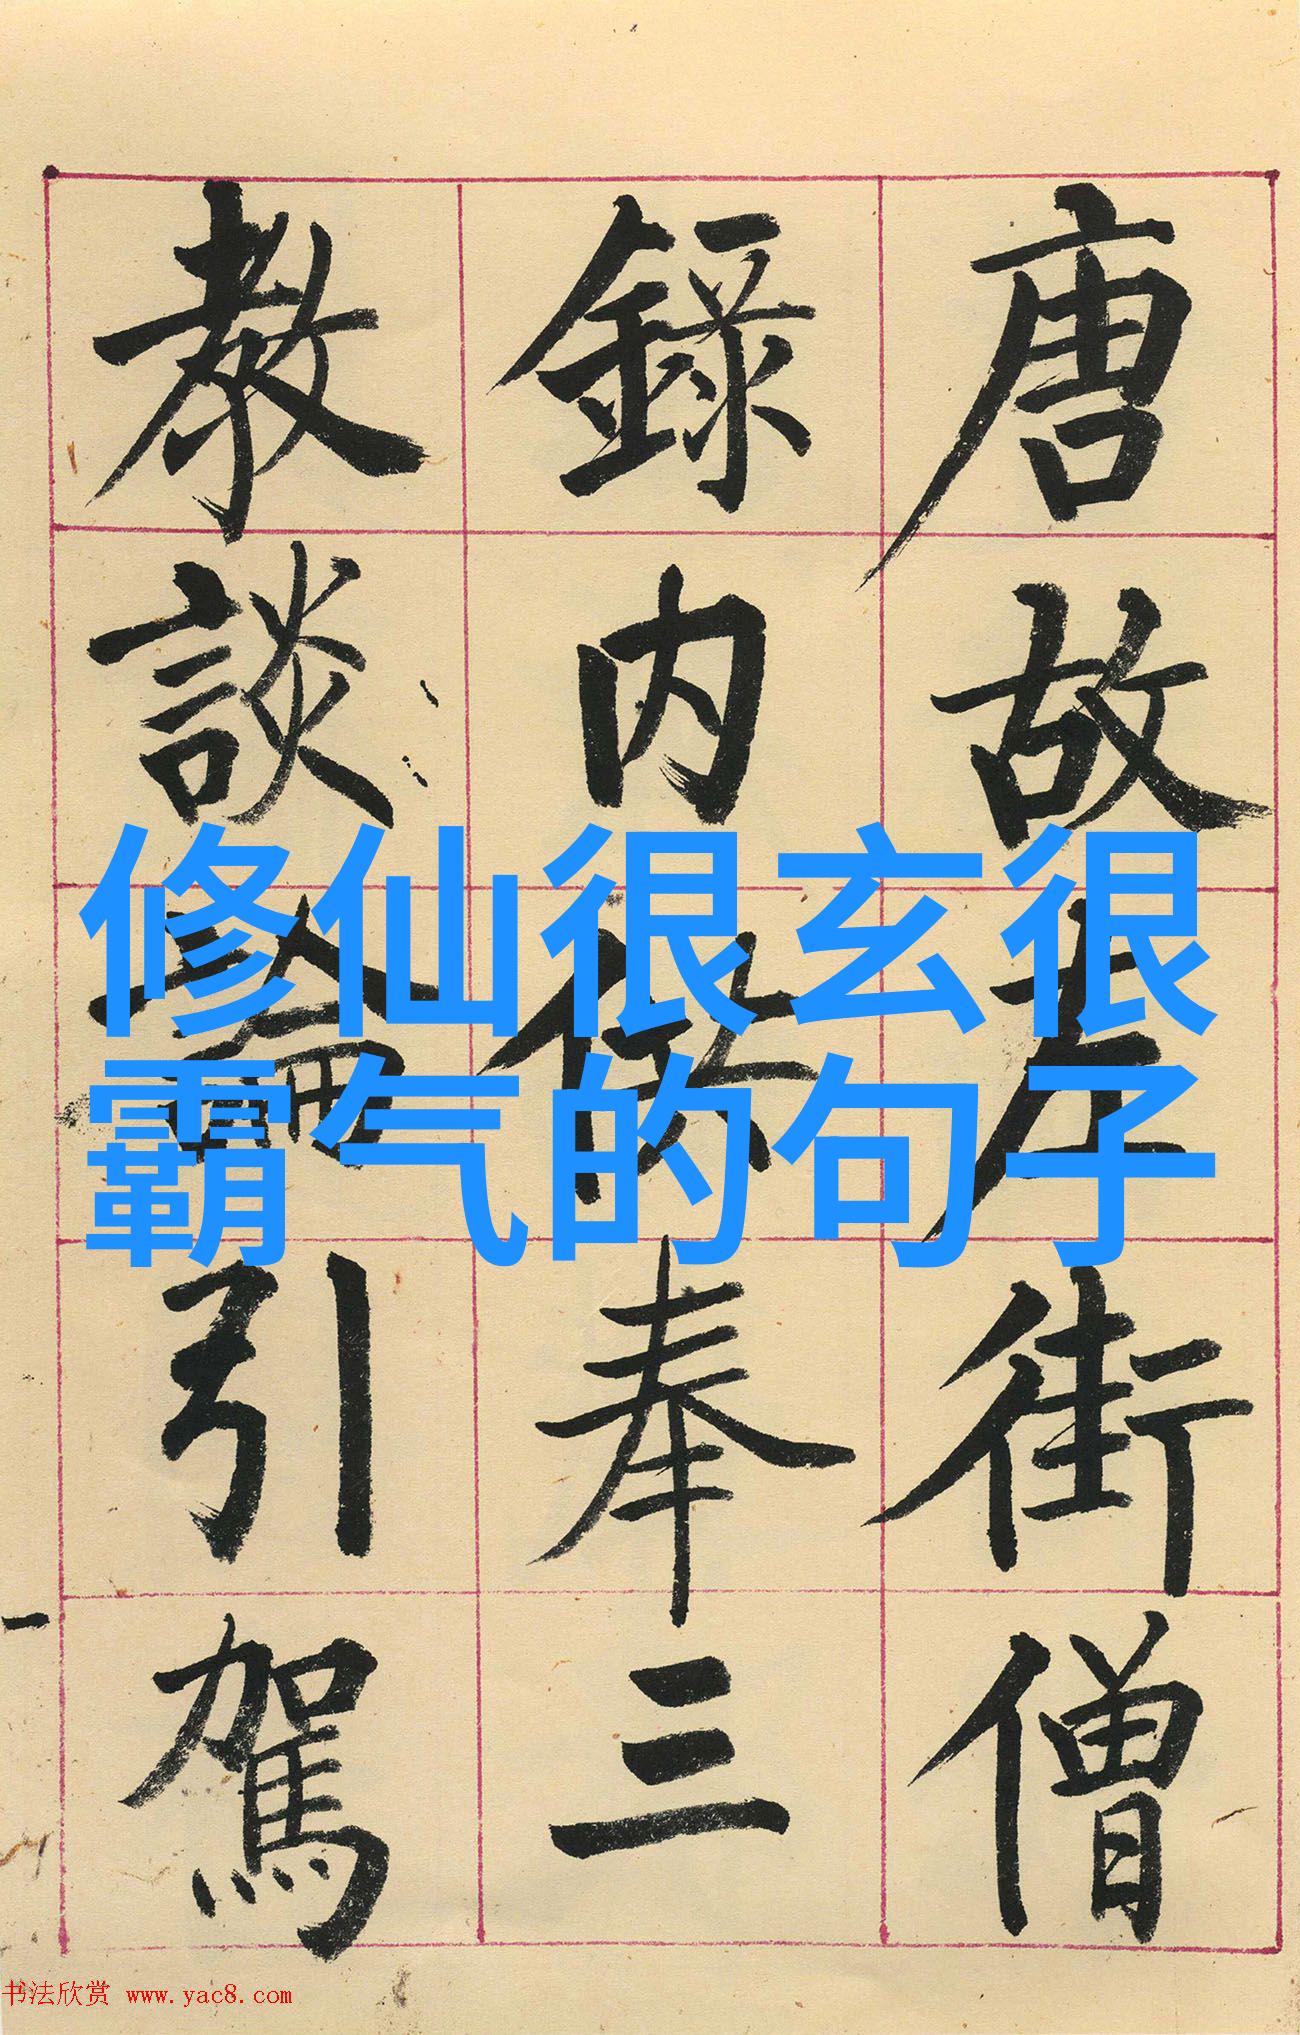 唐故左街僧
録内供奉三
教談論引駕
修仙很玄很
霸气的句子
书法欣赏 www.yac8.com